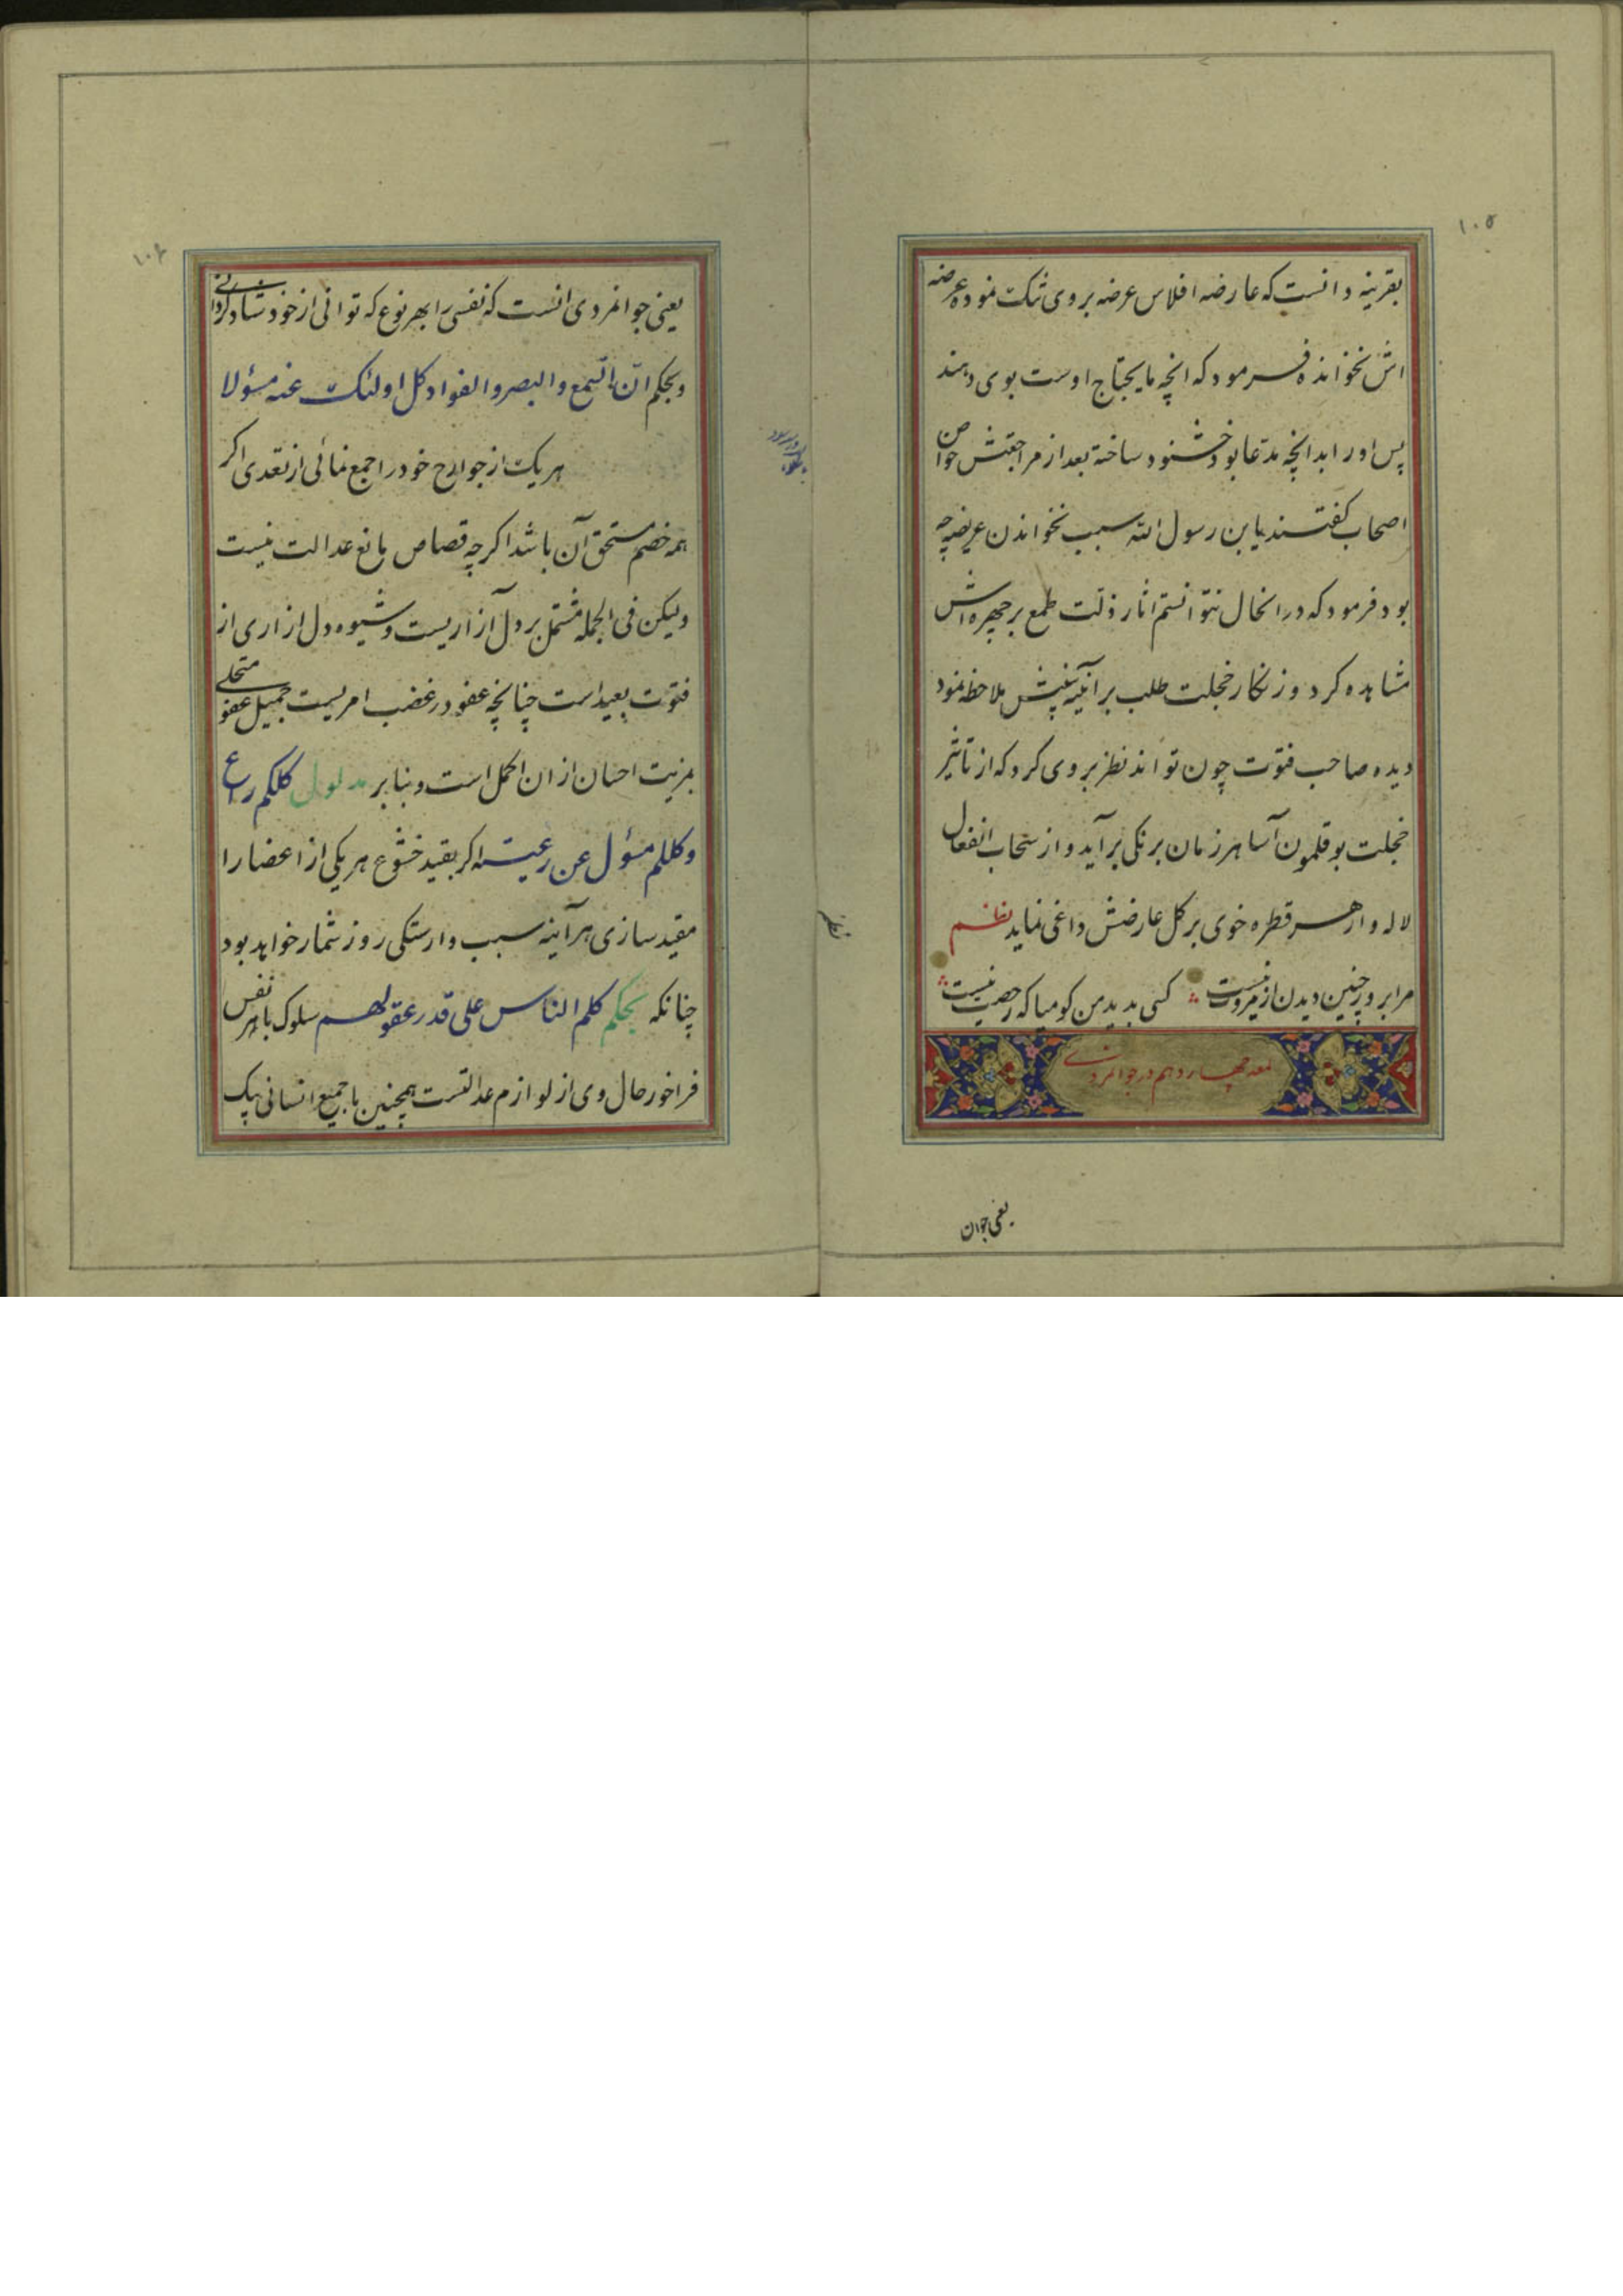 ۱۰۵
بقرینه دانست که عارضه افلاس عرضه بروی تنک نموده عرضه
اش نخوانده فرمود که انچه مایحتاج اوست بوی دهند
پس اورا بدانچه مدعا بود خشنود ساخته بعد از مراجعتش خواص
اصحاب کفتند یابن رسول الله سبب نخواندن عریضه چه
بود فرمود که درانحال نتوانستم اثار ذلت طمع بر چهره اش
مشاهده کرد و زنکار خجلت طلب بر آئینه ملاحظه نمود
دیده صاحب فتوت چون تواند نظر بروی کرد که از تاثیر
خجلت بوقلمون آسا هر زمان برنکی برآید و از سحاب انفعال
لاله وار هر قطره خوی بر کل عارضش داغی نماید نظم
مرا برو چنین دیدن از مروت نیست کسی بدید من کو میا که رخصت نیست
لمعه چهاردهم در جوانمردی
یعنی جوان
۱۰۶
یعنی جوانمردی انست که نفسی را بهر نوع که توانی از خود شاد کردانی
و بحکم انّ السمع و البصر و الفواد کل اولئک عنه مسؤلا
هر یک از جوارح خود را جمع نمائی از تعدی اکر
همه خصم مستحق آن باشد اکرچه قصاص مانع عدالت نیست
ولیکن فی الجمله مشتمل بر دل آزاریست و شیوه دل ازاری از
فتوت بعید است چنانچه عفو در غضب امریست جمیل عفو متحلی
بمزیت احسان از ان اکمل است و بنا بر مدلول کلکم راع
و کللم مسؤل عن رعیته اکر بقید خشوع هر یکی از اعضا را
مقید سازی هر آینه سبب وارستکی روز شمار خواهد بود
چنانکه بحکم کلم الناس علی قدر عقولهم سلوک با هر نفس
فراخور حال وی از لوازم عدالتست همچنین با جمیع انسانی بیک